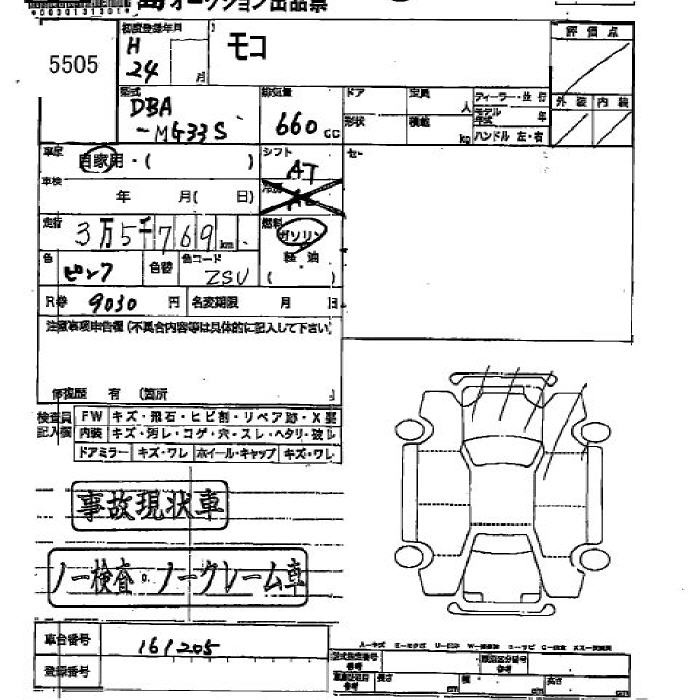 オークション出品票
5505
初度登録年月
H 24 月
モコ
評価点
型式 DBA -MG33S
総排気量 660 cc
ドア 定員 人
形状 積載 kg
ディーラー・並行
モデル年式 年
ハンドル 左・右
外装 内装
車歴 自家用・( )
シフト AT
車検 年 月( 日)
冷房 AC
セ
走行 3万5千769 km
燃料 ガソリン
軽油
( )
色 ピンク 色替 色コード ZSU
R券 9030 円 名変期限 月 日
注意事項申告欄(不具合内容等は具体的に記入して下さい)
修復歴 有 (箇所
検査員記入欄
FW キズ・飛石・ヒビ割・リペア跡・X要
内装 キズ・汚レ・コゲ・穴・スレ・ヘタリ・破レ
ドアミラー キズ・ワレ ホイール・キャップ キズ・ワレ
事故現状車
ノー検査・ノークレーム車
車台番号 161205
登録番号
型式指定番号 参考 類別区分番号 参考
長さ cm 幅 cm 高さ cm